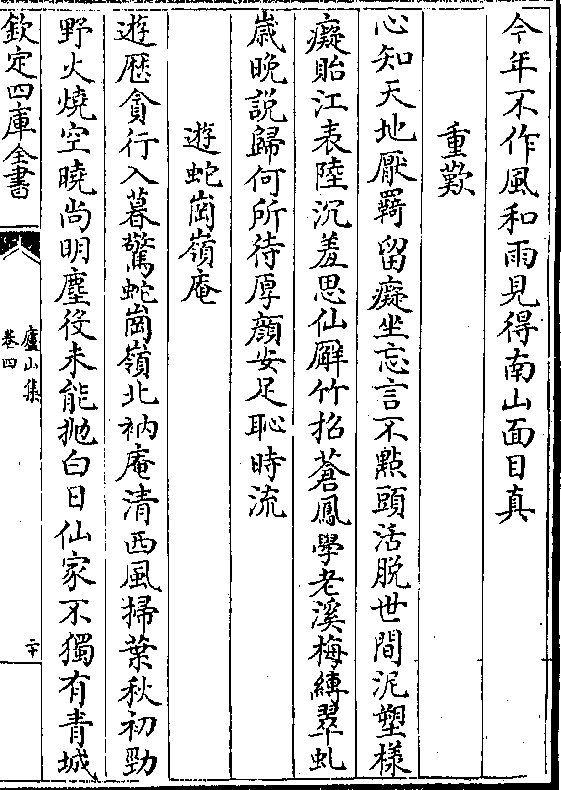 今年不作風和雨見得南山面目真
重歎
心知天地厭羇留癡坐忘言不點頭活脫世間泥塑樣
癡貽江表陸沉羞思仙廨竹招蒼鳳學老溪梅縛翠虬
歲晚說歸何所待厚顔安足恥時流
遊蛇崗嶺庵
遊歷貪行入暮驚蛇崗嶺北衲庵清西風掃葉秋初勁
野火燒空曉尚明塵役未能抛白日仙家不獨有青城
欽定四庫全書
廬山集
卷四
二十